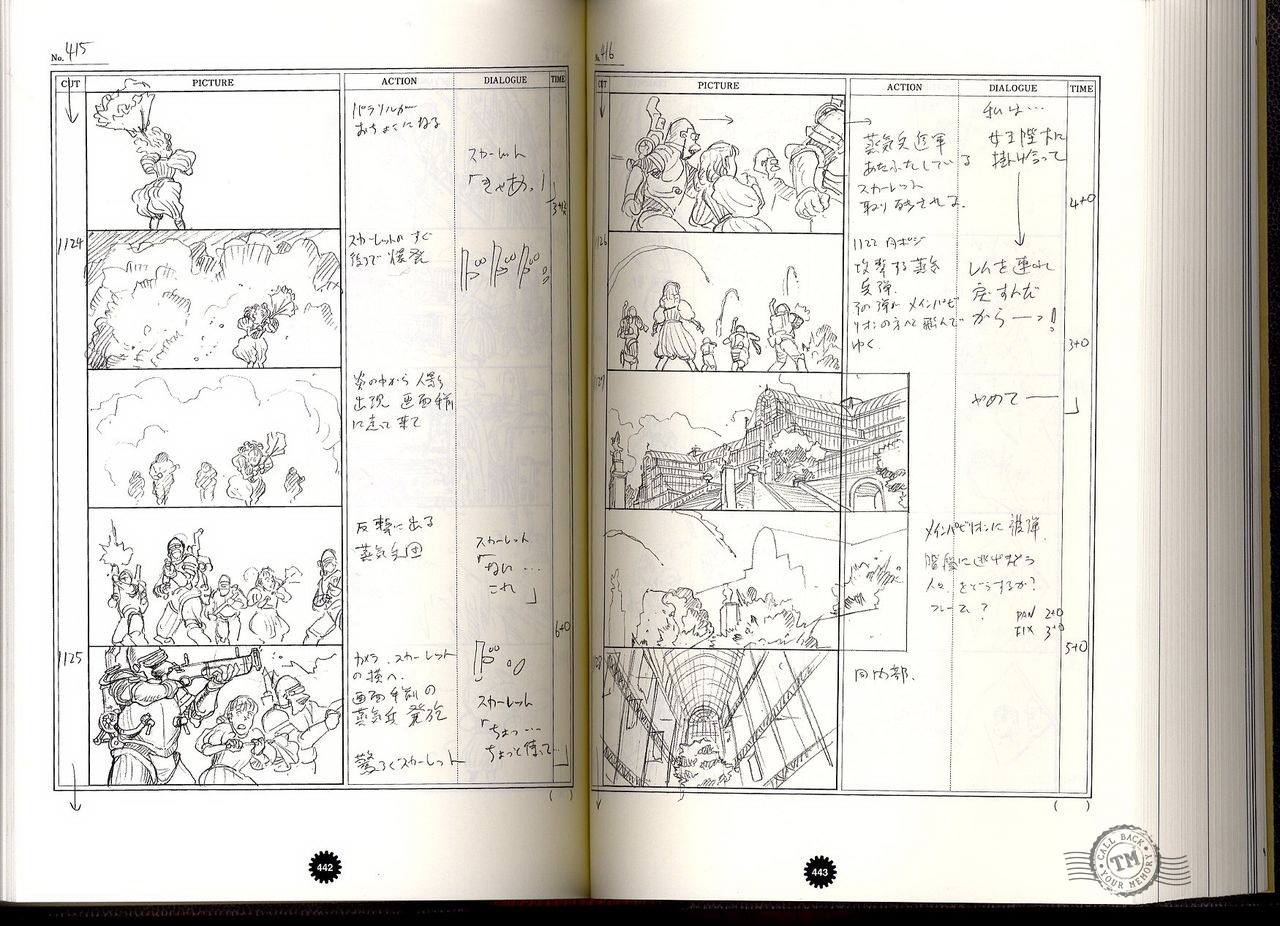 No. 415
CUT PICTURE ACTION DIALOGUE TIME
パラソルが
おちょこになる
スカーレット
「きゃあっ!」
3+12
1124
スカーレットのすぐ
後ろで爆発
炎の中から人影
出現 画面手前
に走って来て
反撃に出る
蒸気兵団
スカーレット
「なに…
これ」
6+0
1125
カメラ、スカーレット
の横へ.
画面手前の
蒸気兵 発砲
驚ろくスカーレット
スカーレット
「ちょっ…
ちょっと待って…」
( )
442
No. 416
CUT PICTURE ACTION DIALOGUE TIME
蒸気兵進軍
あたふたしている
スカーレット
取り残される.
私は…
女王陛下に
掛け合って
4+0
1126
1122 同ポジ
攻撃する蒸気
兵弾.
その弾がメインパビ
リオンの方へ飛んで
ゆく.
レムを連れ
戻すんだ
からーっ!
3+0
1127
やめてー」
メインパビリオンに着弾.
階段に逃げまどう
人々をどうするか?
フレーム?
PAN 2+0
FIX 3+0
5+0
同内部.
( )
443
CALL BACK
TM
YOUR MEMORY